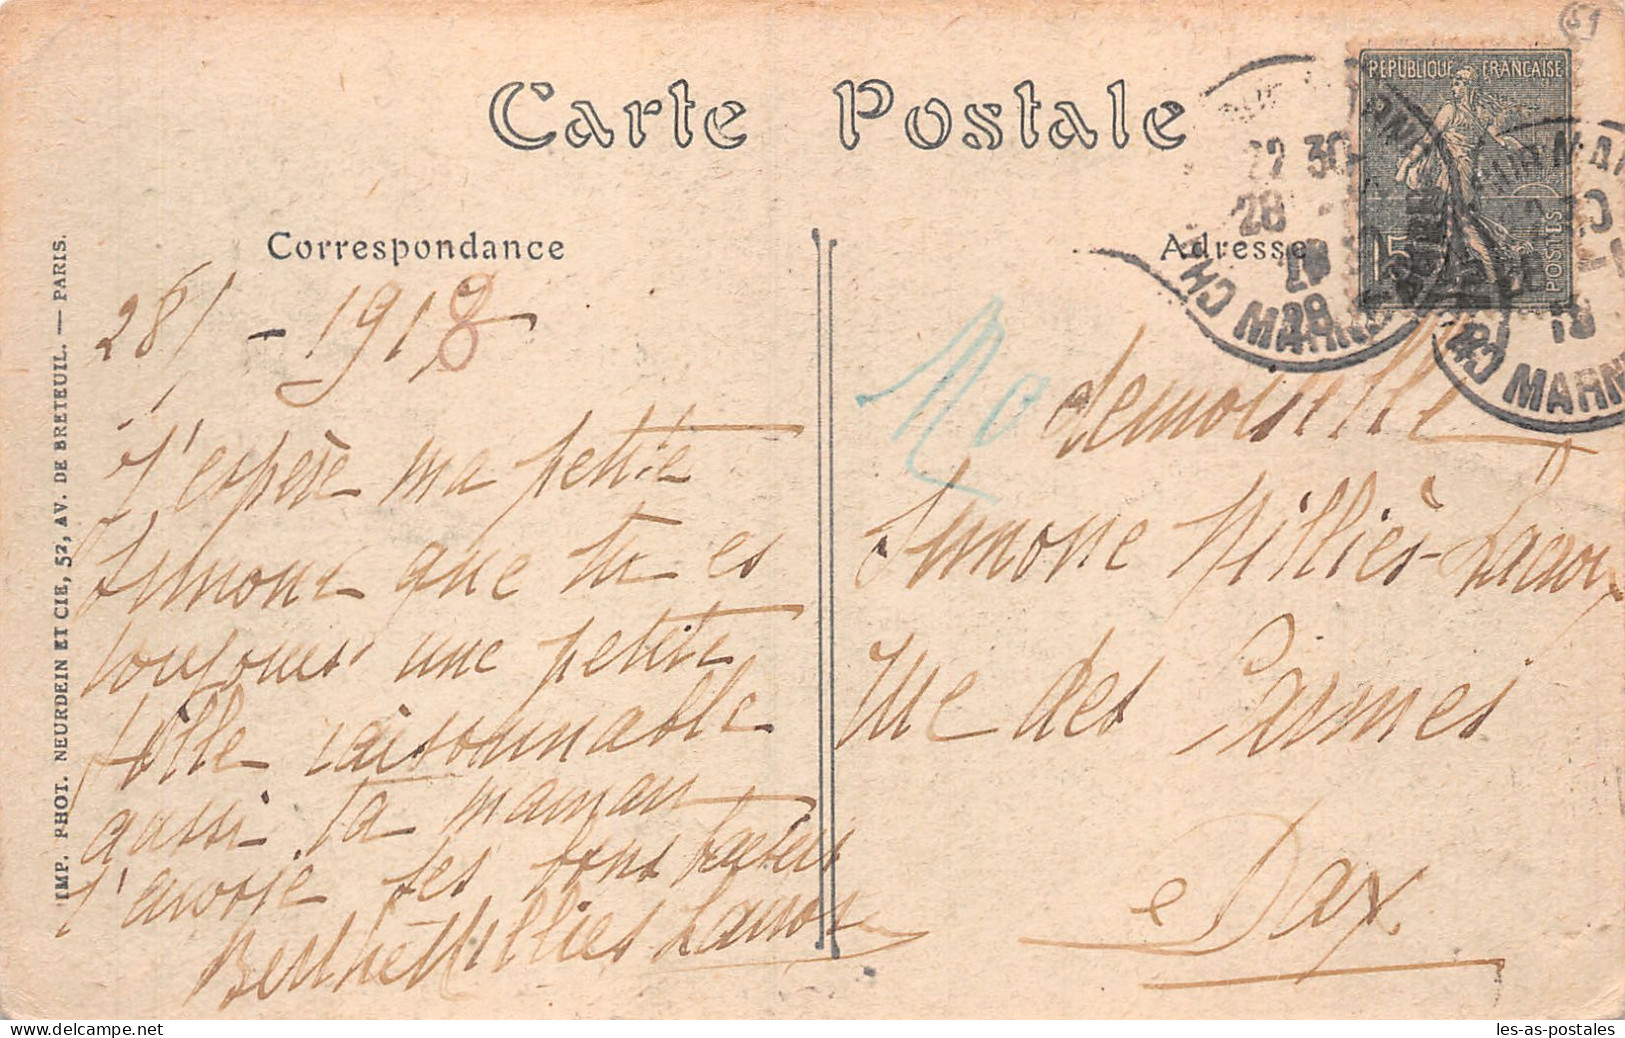 Carte Postale
51
REPUBLIQUE FRANCAISE
15
POSTES
22 30
28
MARNE
MARNE
18
Correspondance
Adresse
28/1 - 1918
J'espère ma petite
Simone que tu es
toujours une petite
fille raisonnable
aussi ta maman
t'envoie ses bons baisers
Berthe Milliès Lacroix
Mademoiselle
Simone Milliès-Lacroix
rue des Carmes
Dax
IMP. PHOT. NEURDEIN ET CIE, 52, AV. DE BRETEUIL. — PARIS.
les-as-postales
www.delcampe.net